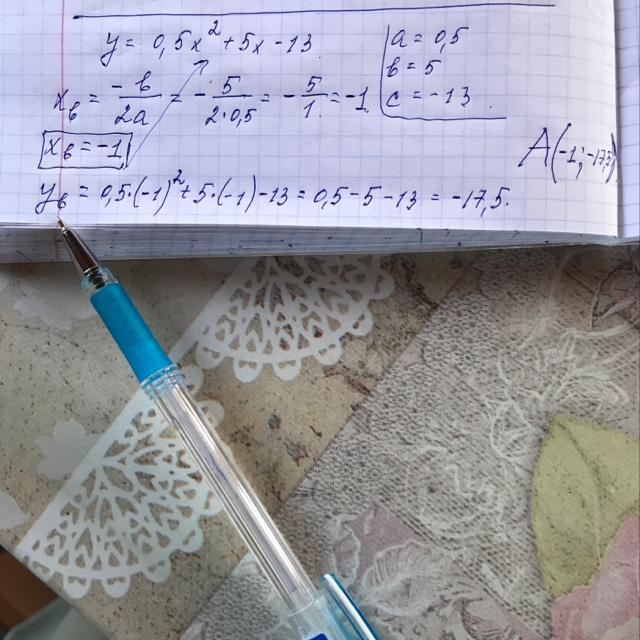 y = 0,5x² + 5x - 13
a = 0,5
b = 5
c = -13
x_в = -b/2a = -5/(2·0,5) = -5/1 = -1
x_в = -1
A(-1; -17,5)
y_в = 0,5·(-1)² + 5·(-1) - 13 = 0,5 - 5 - 13 = -17,5.